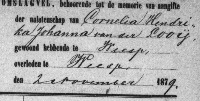 ONSLAGVEL, behoorende tot de memorie van aangifte
der nalatenschap van Cornelia Hendri-
ka Johanna van der Looij,
gewoond hebbende te Weesp,
overleden te Weesp,
den 2 November 1879.